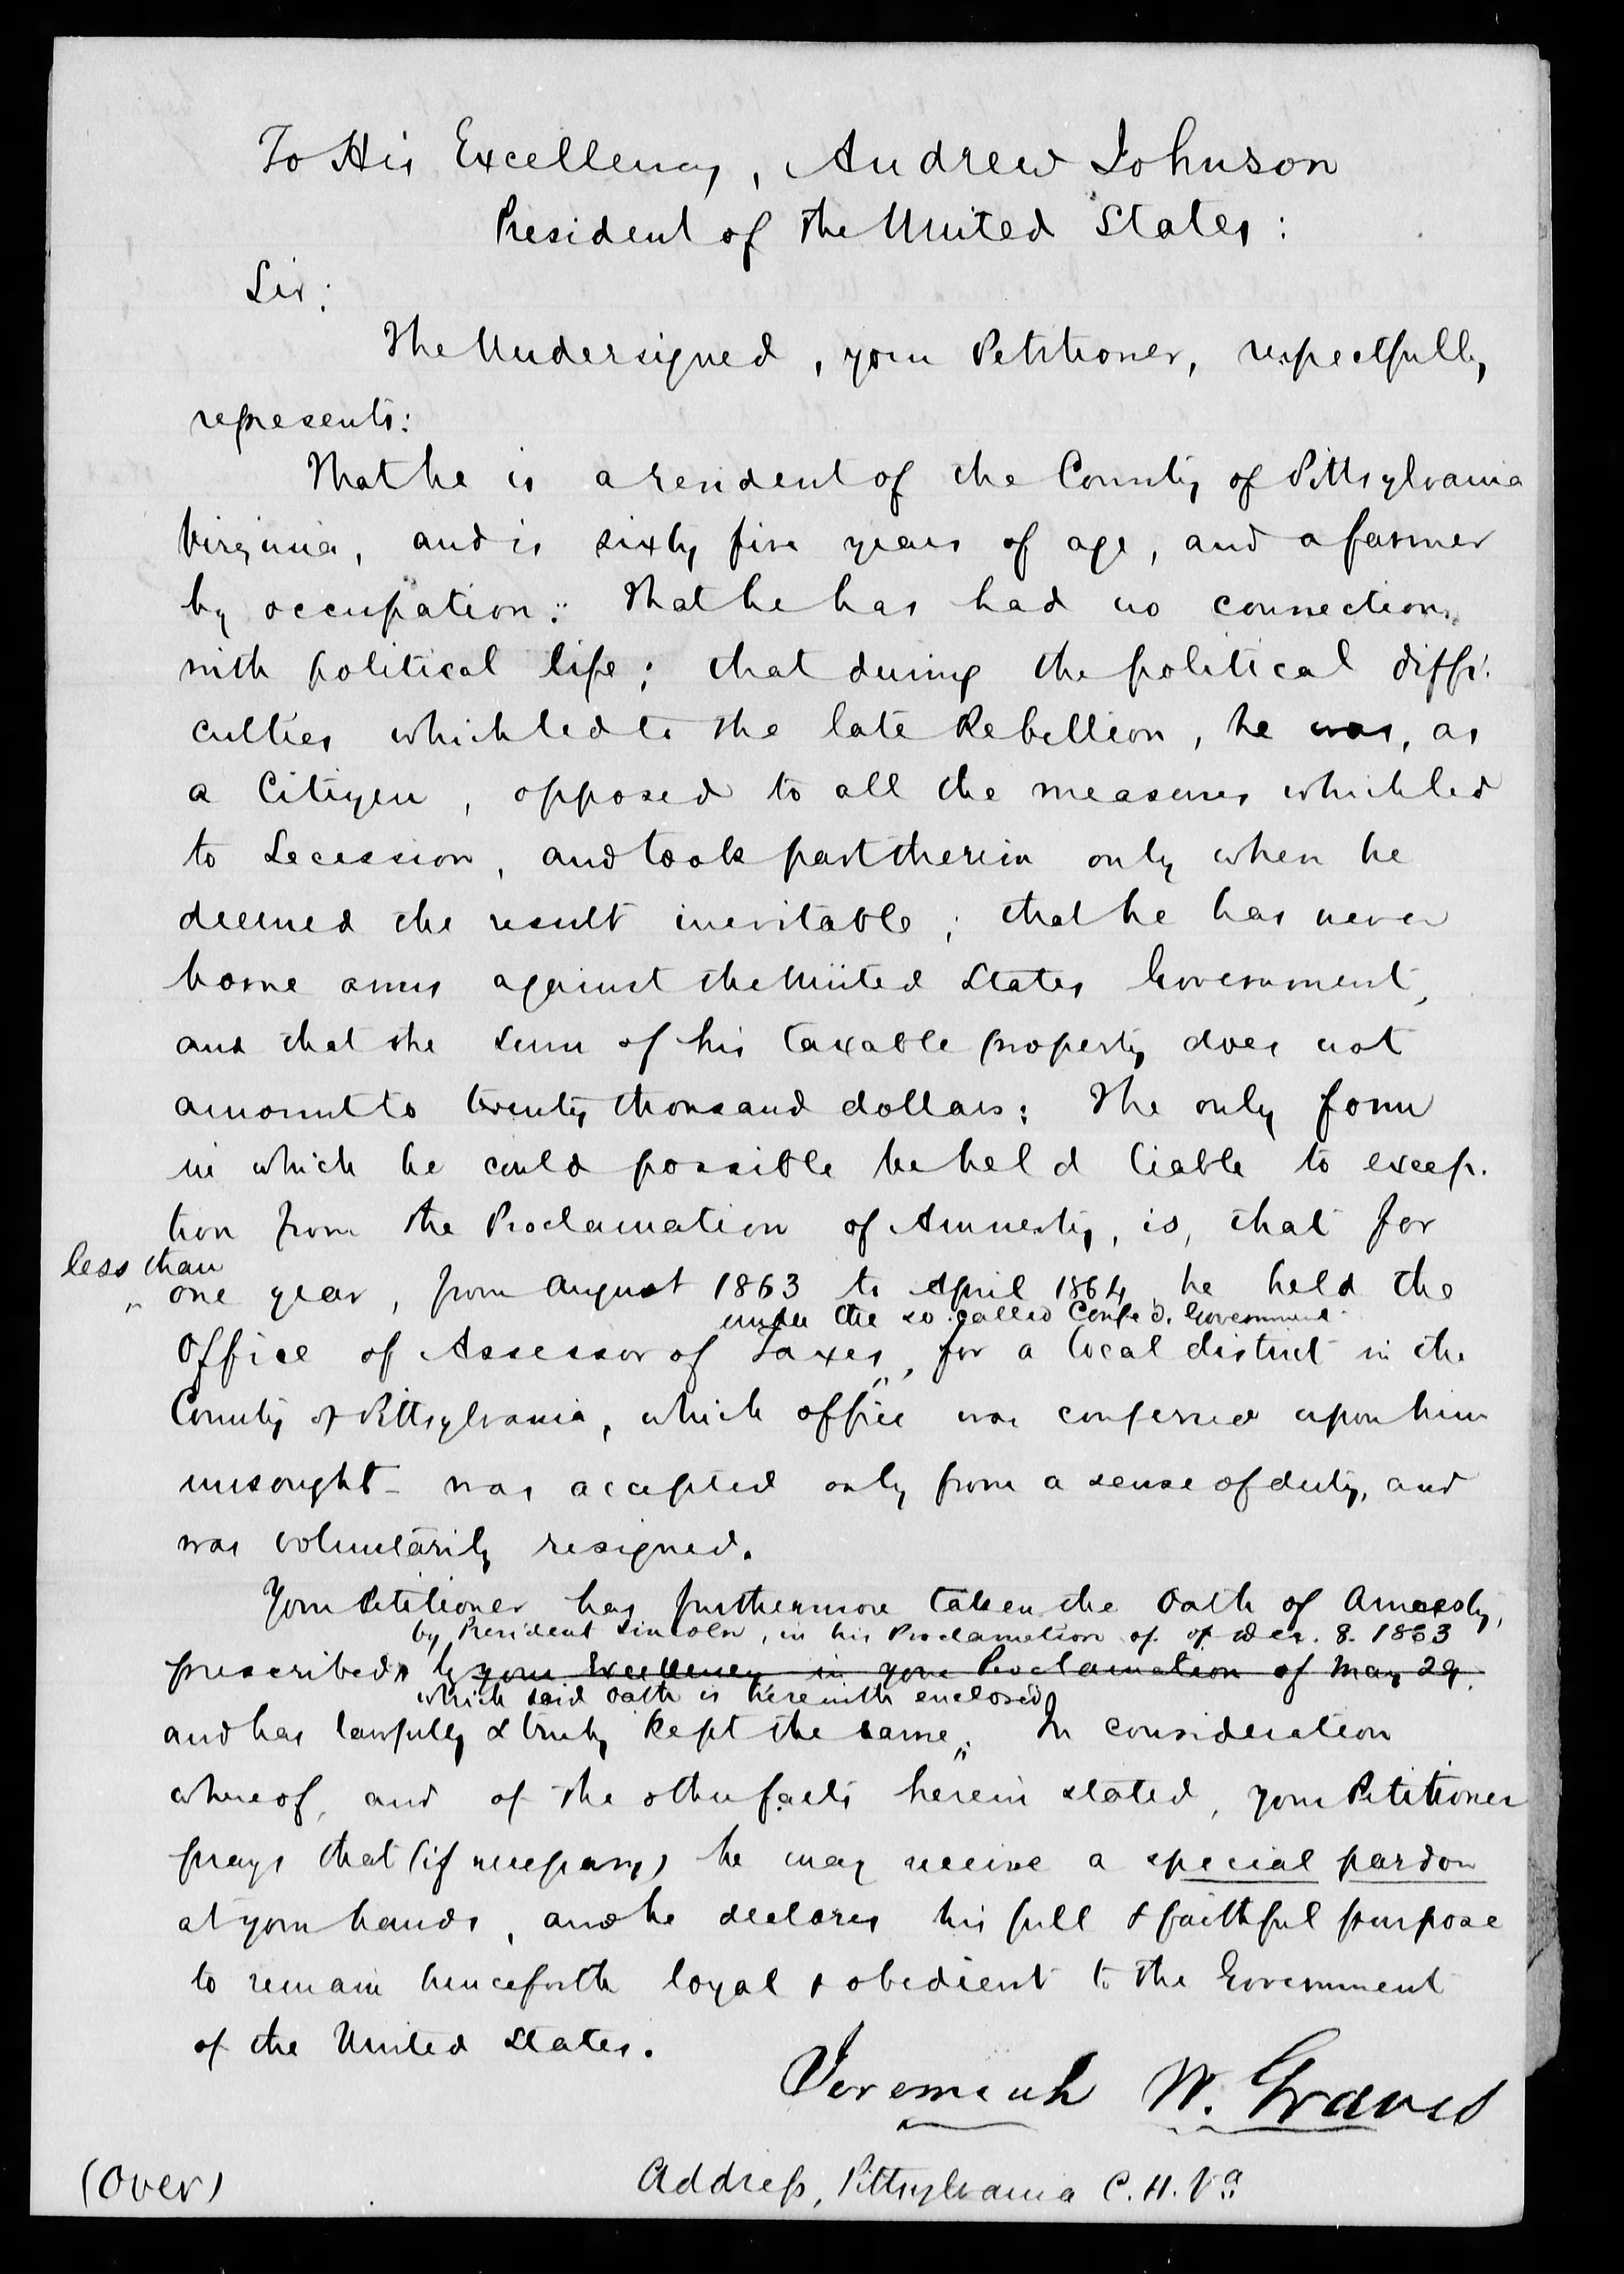 To His Excellency, Andrew Johnson
President of the United States:
Sir:
The Undersigned, your Petitioner, respectfully
represents:
That he is a resident of the County of Pittsylvania
Virginia, and is sixty five years of age, and a farmer
by occupation: That he has had no connection
with political life; that during the political diffi-
culties which led to the late Rebellion, he was, as
a Citizen, opposed to all the measures which led
to Secession, and took part therein only when he
deemed the result inevitable; that he has never
borne arms against the United States Government,
and that the sum of his taxable property does not
amount to twenty thousand dollars: The only form
in which he could possible be held liable to excep-
tion from the Proclamation of Amnesty, is, that for
less than
one year, from August 1863 to April 1864, he held the
under the so-called Confed. Government
Office of Assessor of Taxes, for a local district in the
County of Pittsylvania, which office was conferred upon him
unsought - was accepted only from a sense of duty, and
was voluntarily resigned.
Your Petitioner has furthermore taken the Oath of Amnesty,
by President Lincoln, in his Proclamation of of Dec. 8. 1863
prescribed by your Excellency in your Proclamation of May 29.
which said oath is herewith enclosed
and has lawfully & truly kept the same. In consideration
whereof, and of the other facts herein stated, your Petitioner
prays that (if necessary) he may receive a special pardon
at your hands, and he declares his full & faithful purpose
to remain henceforth loyal & obedient to the Government
of the United States.
Jeremiah W. Graves
Address, Pittsylvania C.H. Va
(Over)